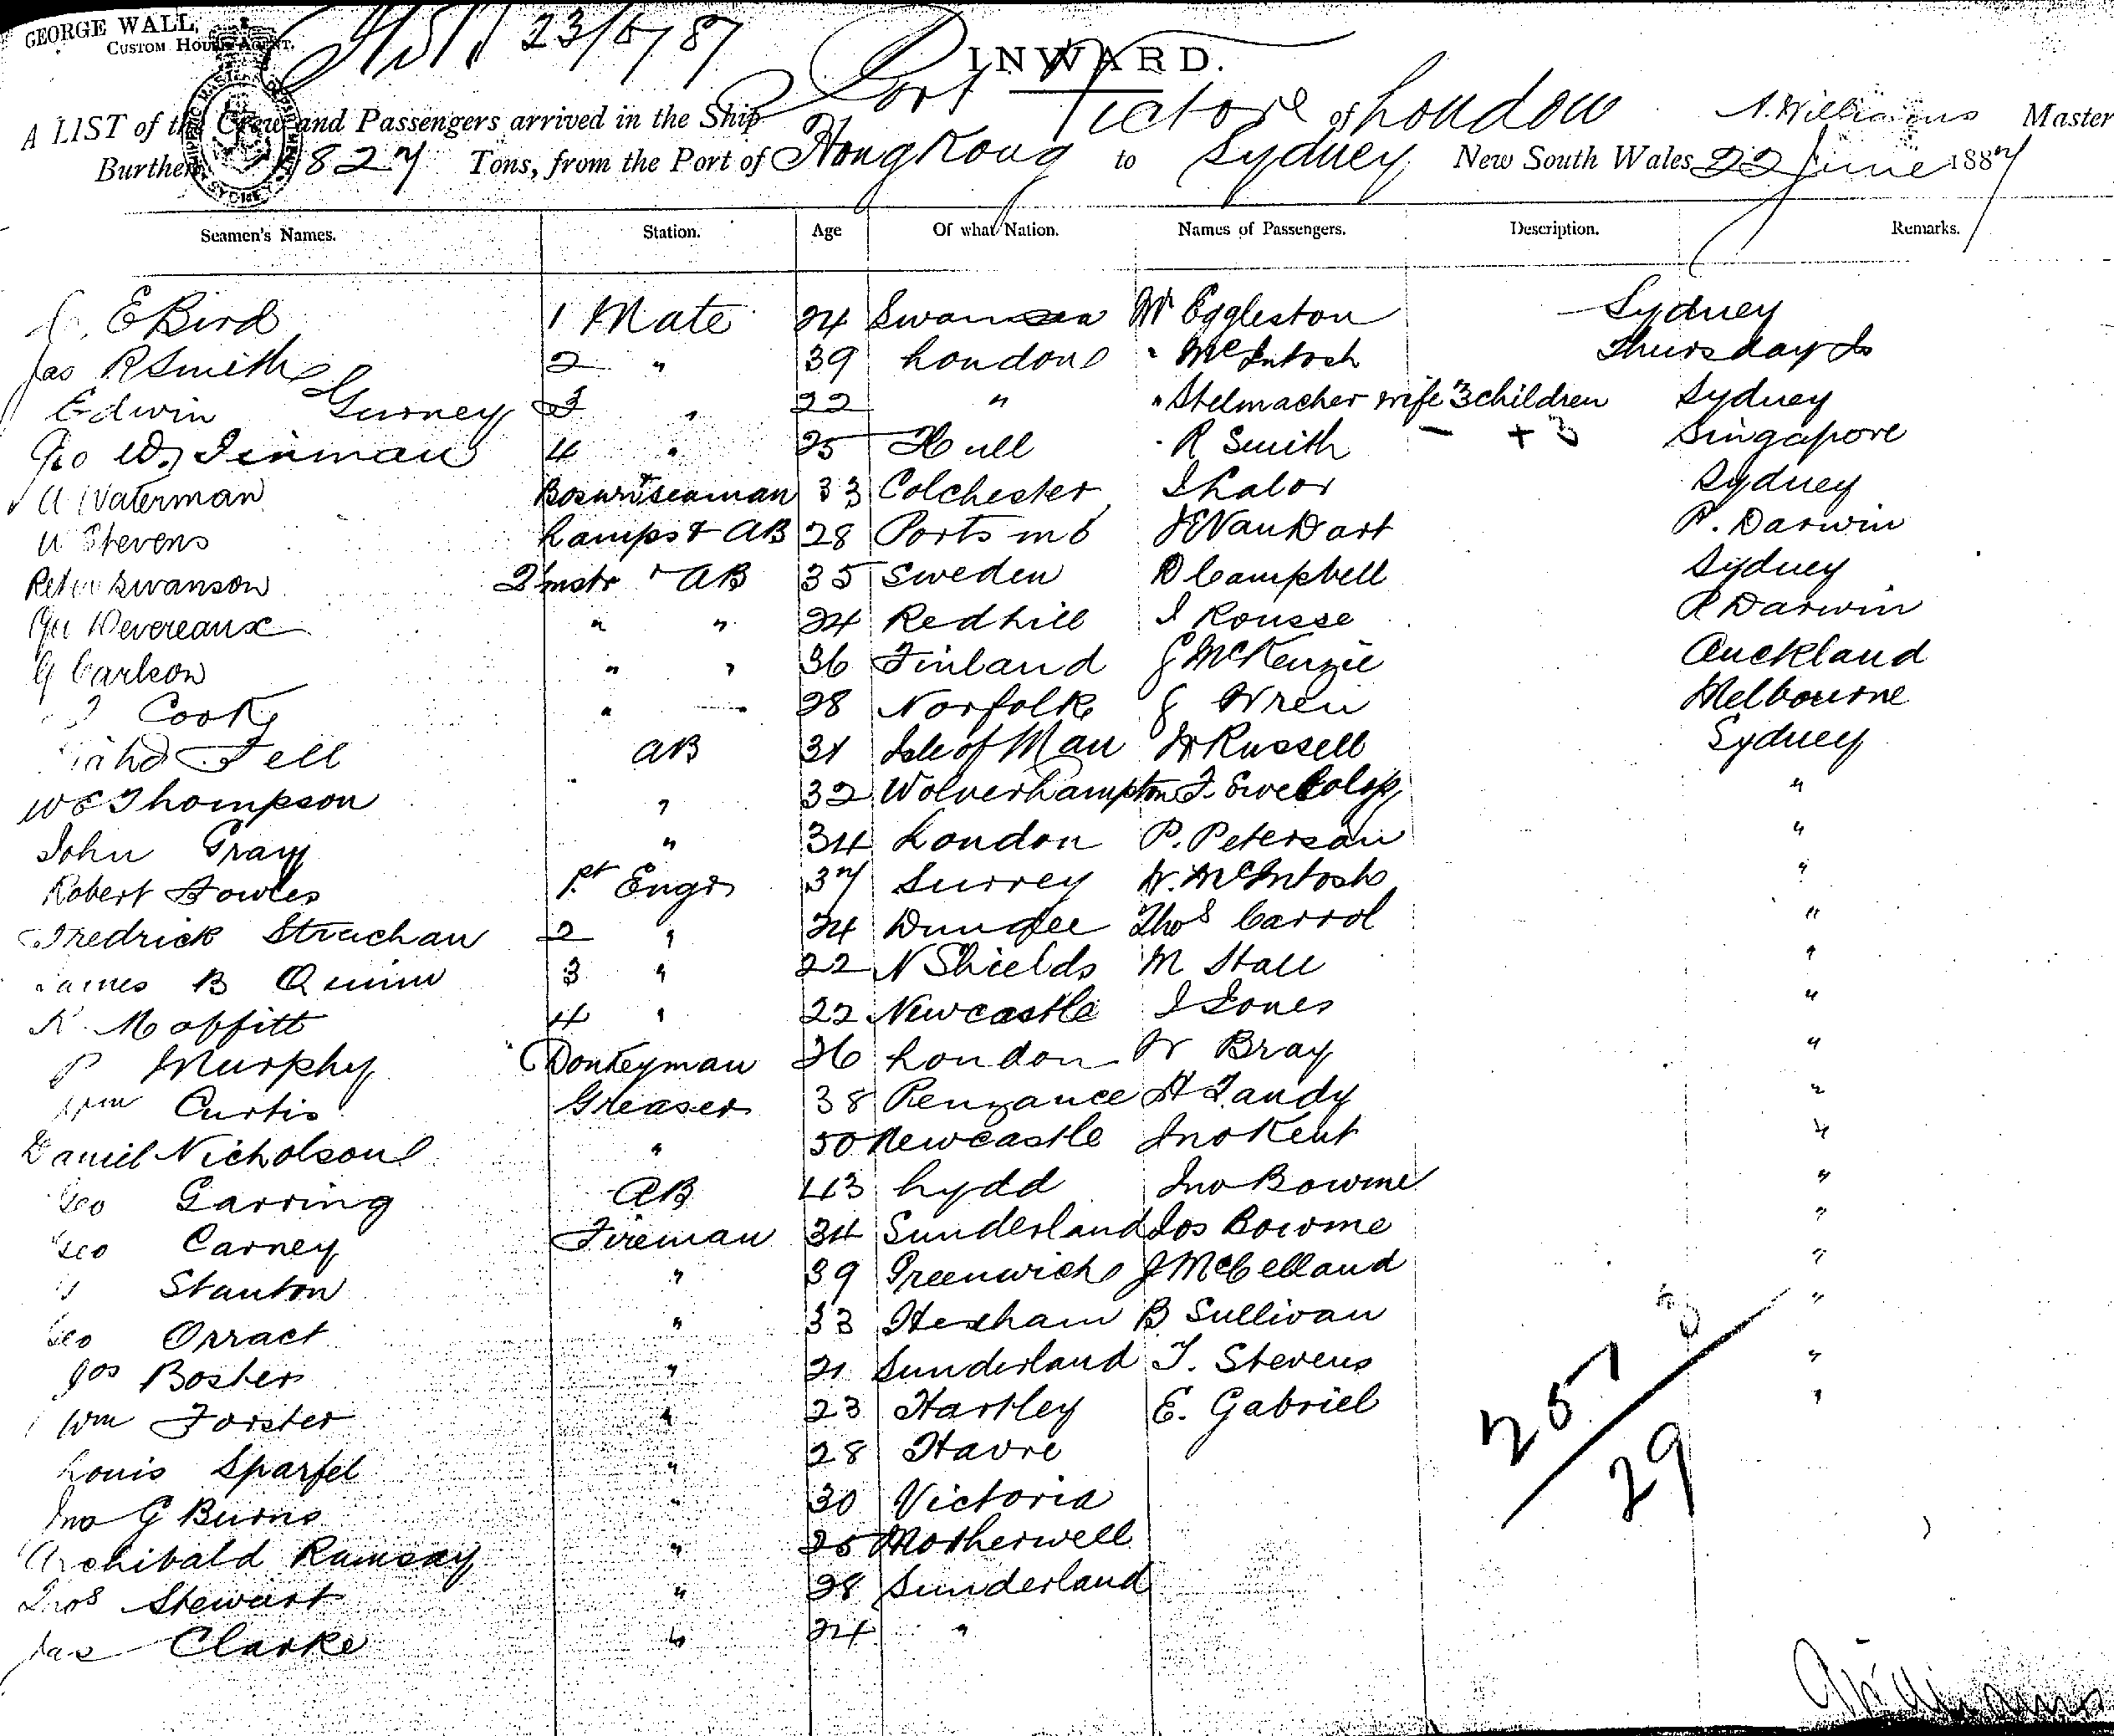 GEORGE WALL,
CUSTOM HOUSE AGENT.
23/6/87
INWARD.
A LIST of the Crew and Passengers arrived in the Ship Port Victore of London A. Williams Master
Burthen 1827 Tons, from the Port of Hong Kong to Sydney, New South Wales 22 June 1887
Seamen's Names. Station. Age Of what Nation. Names of Passengers. Description. Remarks.
E Bird 1 Mate 24 Swansea Mr Eggleston Sydney
Jas R Smith 2 " 39 London " McIntosh Thursday Is
Edwin Gurney 3 " 22 " " Stelmacher wife 3 children Sydney
Geo Wm Inman 4 " 25 Hull " R Smith – + 3 Singapore
A Waterman Bosun & seaman 33 Colchester I Lalor Sydney
W Stevens Lamps & AB 28 Ports mo J E Van Dart P. Darwin
Peter Swanson Qr mstr & AB 35 Sweden D Campbell Sydney
Devereaux " " 24 Redhill I Rousse P Darwin
G Carlson " " 36 Finland J McKenzie Auckland
Cook " " 28 Norfolk J Wren Melbourne
Fell AB 31 Isle of Man W Russell Sydney
W E Thompson " 32 Wolverhampton F. "
John Gray " 34 London P. Peterson "
Robert Fowles 1st Engr 37 Surrey W. McIntosh "
Fredrick Strachan 2 " 24 Dundee Thos Carrol "
James B Quinn 3 " 22 N Shields M Hall "
K Moffitt 4 " 22 Newcastle I Jones "
P Murphy Donkeyman 26 London W Bray "
Wm Curtis Greaser 38 Penzance H Tandy "
Daniel Nicholson " 50 Newcastle Jno Kent "
Geo Garring AB 43 Lydd Jno Bowme "
Geo Carney Fireman 34 Sunderland Jos Bowme "
Stanton " 39 Greenwich J McCelland "
Geo Orract " 33 Hexham B Sullivan "
Jos Boster " 21 Sunderland T. Stevens "
Wm Forster " 23 Hartley E. Gabriel "
Louis Sparfel " 28 Havre
Jno G Burns " 30 Victoria
Archibald Ramsay " 25 Motherwell
Thos Stewart " 28 Sunderland
Jas Clarke " 24 "
257
29